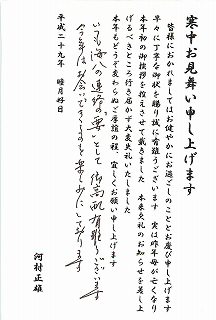 寒中お見舞い申し上げます
皆様におかれましてはお健やかにお過ごしのこととお慶び申し上げます
早々に丁寧なお年賀状を賜り誠に有難うございます 実は昨年母が亡くなり
本年初の御挨拶を控えさせて戴きました 本来欠礼のお知らせを差し上
げるべきところ行き届かず大変失礼いたしました
本年もどうぞ変わらぬご厚誼の程、宜しくお願い申し上げます
いつも 連絡の要として 御高配有難うございます
今年は お会いできますことを楽しみにしております
平成二十九年 睦月好日
河村正雄